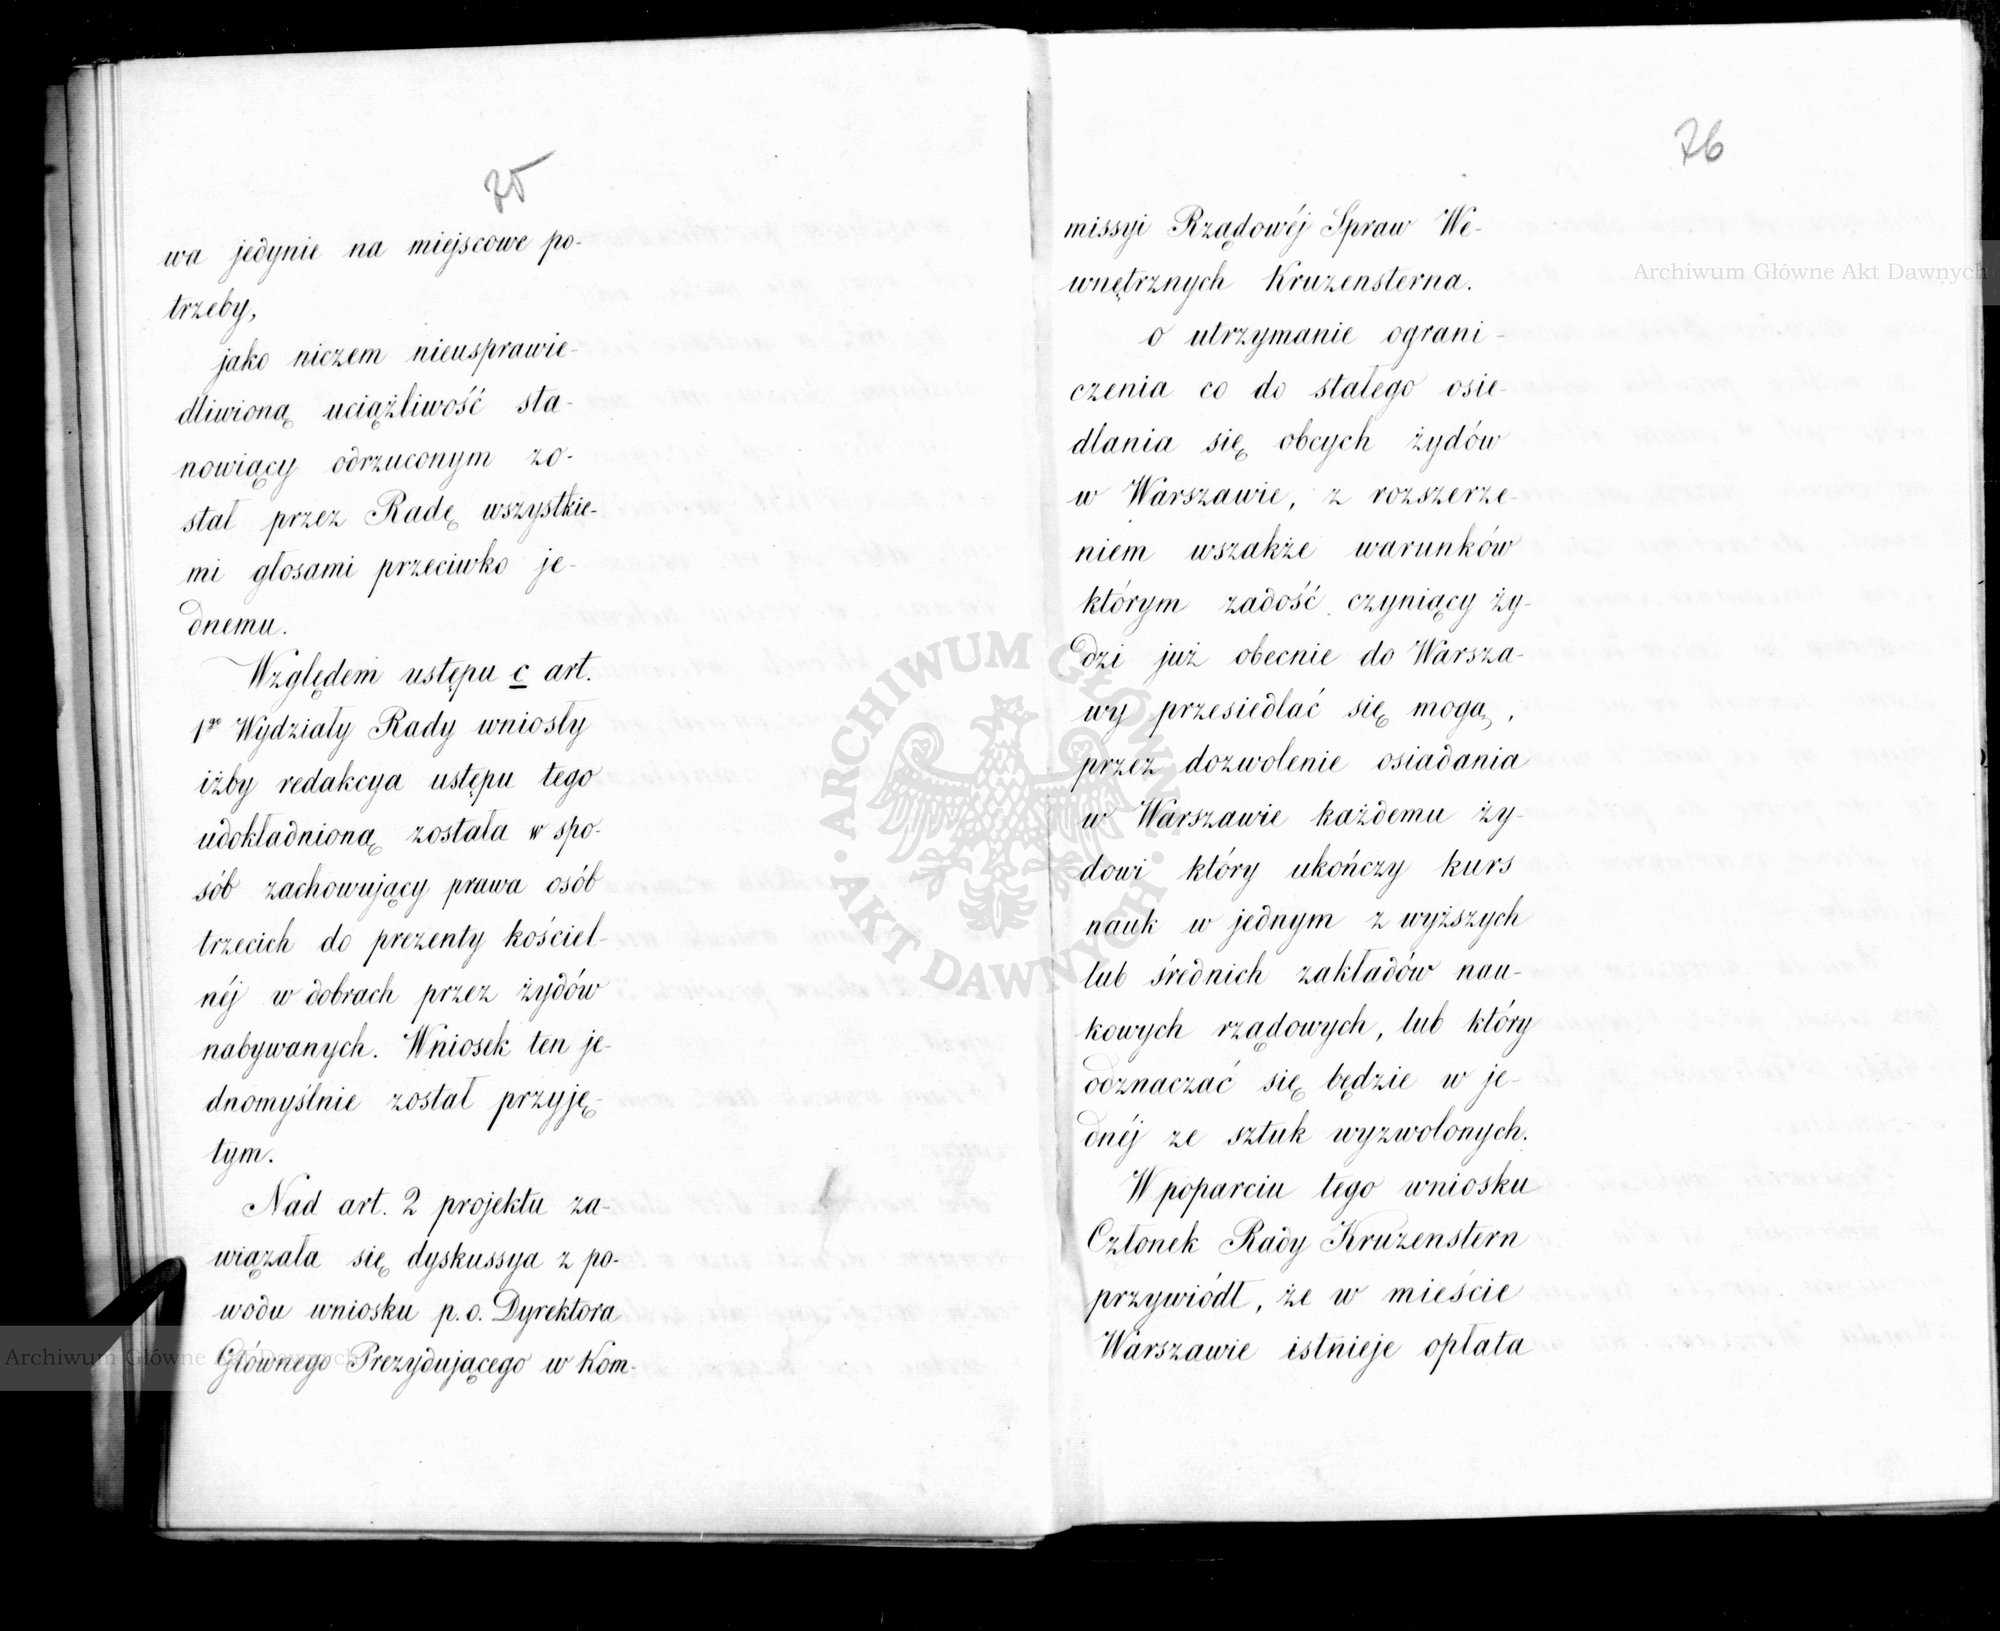 75
wa jedynie na miejscowe po-
trzeby,
jako niczem nieusprawie-
dliwioną uciążliwość sta-
nowiący odrzuconym zo-
stał przez Radę wszystkie-
mi głosami przeciwko je-
dnemu.
Względem ustępu c art.
1go Wydziały Rady wniosły
iżby redakcya ustępu tego
udokładnioną została w spo-
sób zachowujący prawa osób
trzecich do prezenty kościel-
néj w dobrach przez żydów
nabywanych. Wniosek ten je-
dnomyślnie został przyję-
tym.
Nad art. 2 projektu za-
wiązała się dyskussya z po-
wodu wniosku p. o. Dyrektora
Głównego Prezydującego w Kom-
76
missyi Rządowéj Spraw We-
wnętrznych Kruzensterna.
o utrzymanie ograni-
czenia co do stałego osie-
dlania się obcych żydów
w Warszawie, z rozszerze-
niem wszakże warunków
którym zadość czyniący ży-
dzi już obecnie do Warsza-
wy przesiedlać się mogą,
przez dozwolenie osiadania
w Warszawie każdemu ży-
dowi który ukończy kurs
nauk w jednym z wyższych
lub średnich zakładów nau-
kowych rządowych, lub który
odznaczać się będzie w je-
dnéj ze sztuk wyzwolonych.
W poparciu tego wniosku
Członek Rady Kruzenstern
przywiódł, że w mieście
Warszawie istnieje opłata
Archiwum Główne Akt Dawnych
Archiwum Główne Akt Dawnych
ARCHIWUM GŁÓWNE · AKT DAWNYCH ·